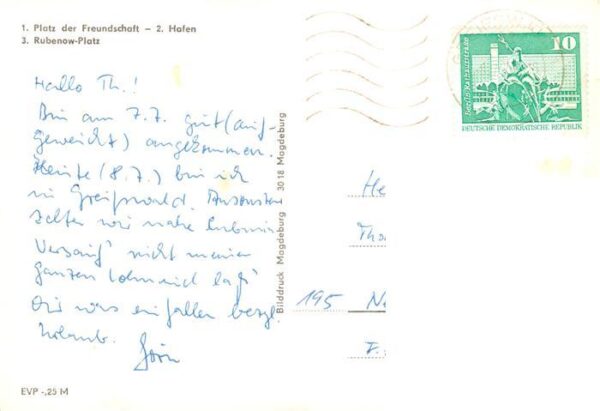 1. Platz der Freundschaft – 2. Hafen
3. Rubenow-Platz
Hallo Th.!
Bin am 7.7. gut (auf-
geweicht) angekommen.
Heute (8.7.) bin ich
in Greifswald. Ansonsten
zelten wir nahe Lubmin
nicht meinen
ganzen
Dir was einfallen bezgl.
Urlaub.
Jörn
EVP -,25 M
Bilddruck Magdeburg 3018 Magdeburg
10
Berlin, Rathausstraße
DEUTSCHE DEMOKRATISCHE REPUBLIK
He
Tho
195 Ne
F.